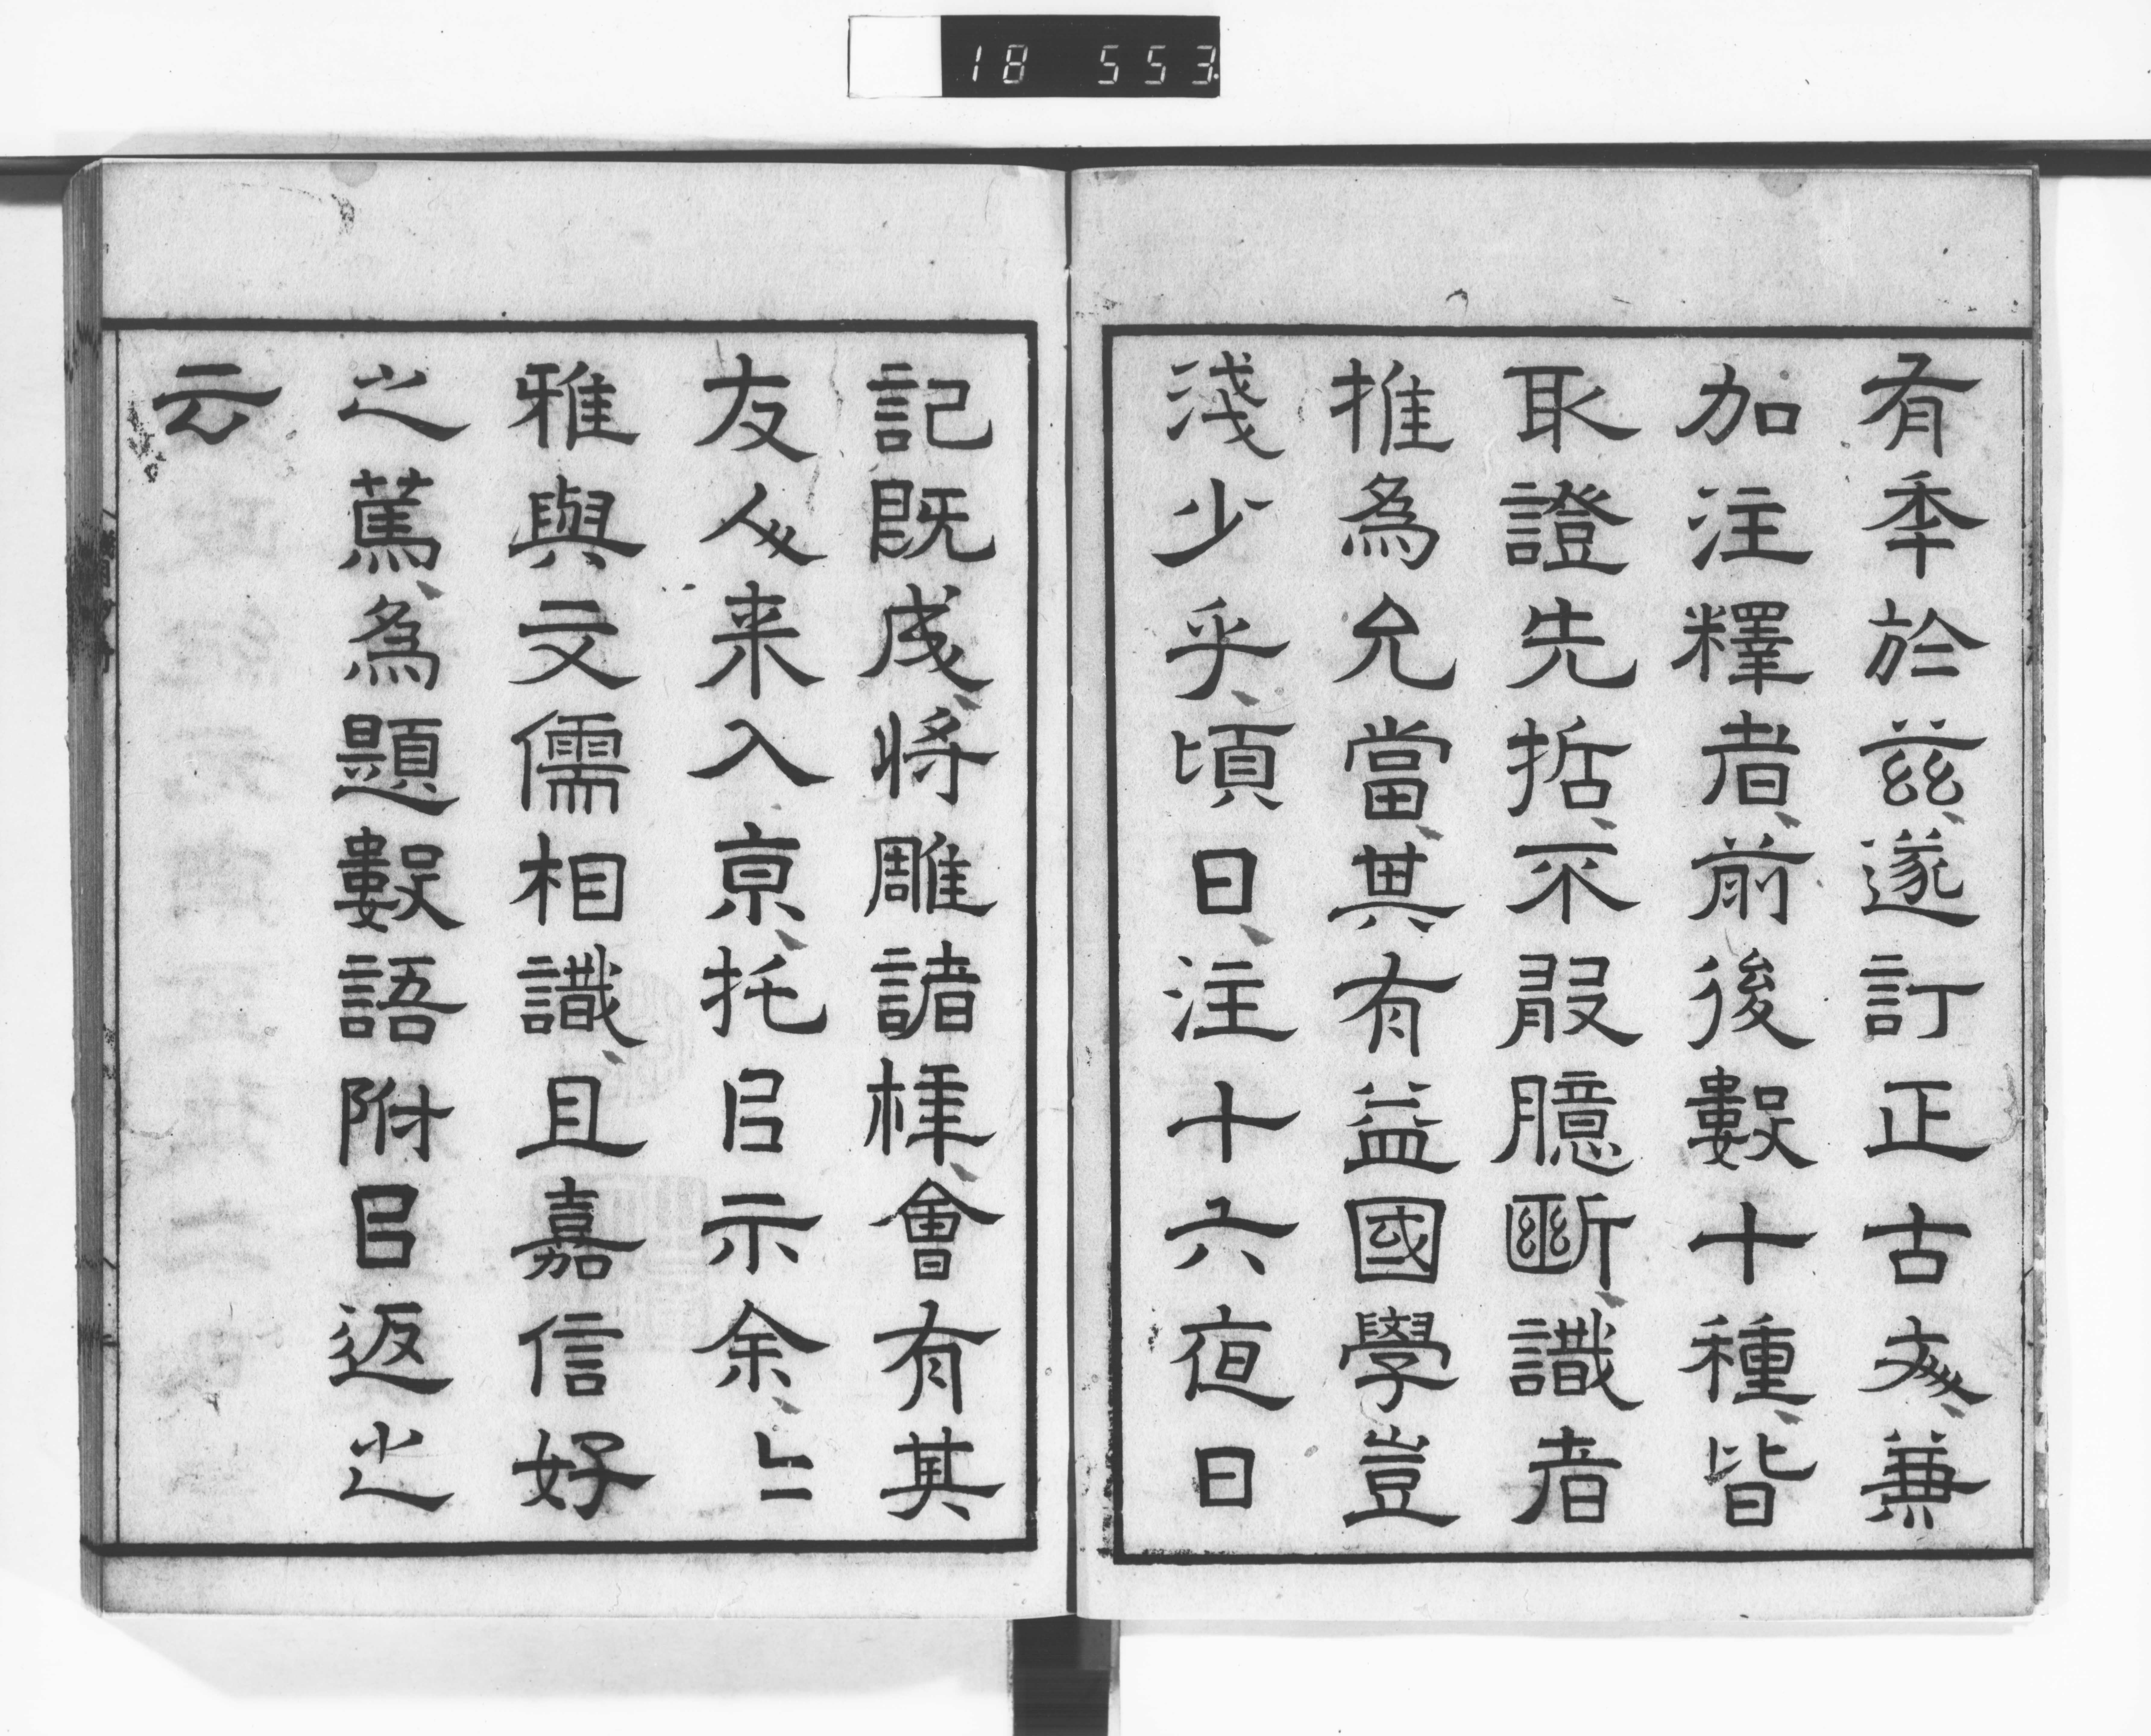 18 553
有年於茲、遂訂正古文〻、兼
加注釋者、前後數十種、皆
取證先哲、不敢臆斷、識者
推為允當、其有益國學豈
淺少乎、頃日、注十六夜日
記既成、將雕諸梓、會有其
友人〻来入京、托㠯示余、〻
雅與文儒相識、且嘉信好
之篤、為題數語附㠯返之
云